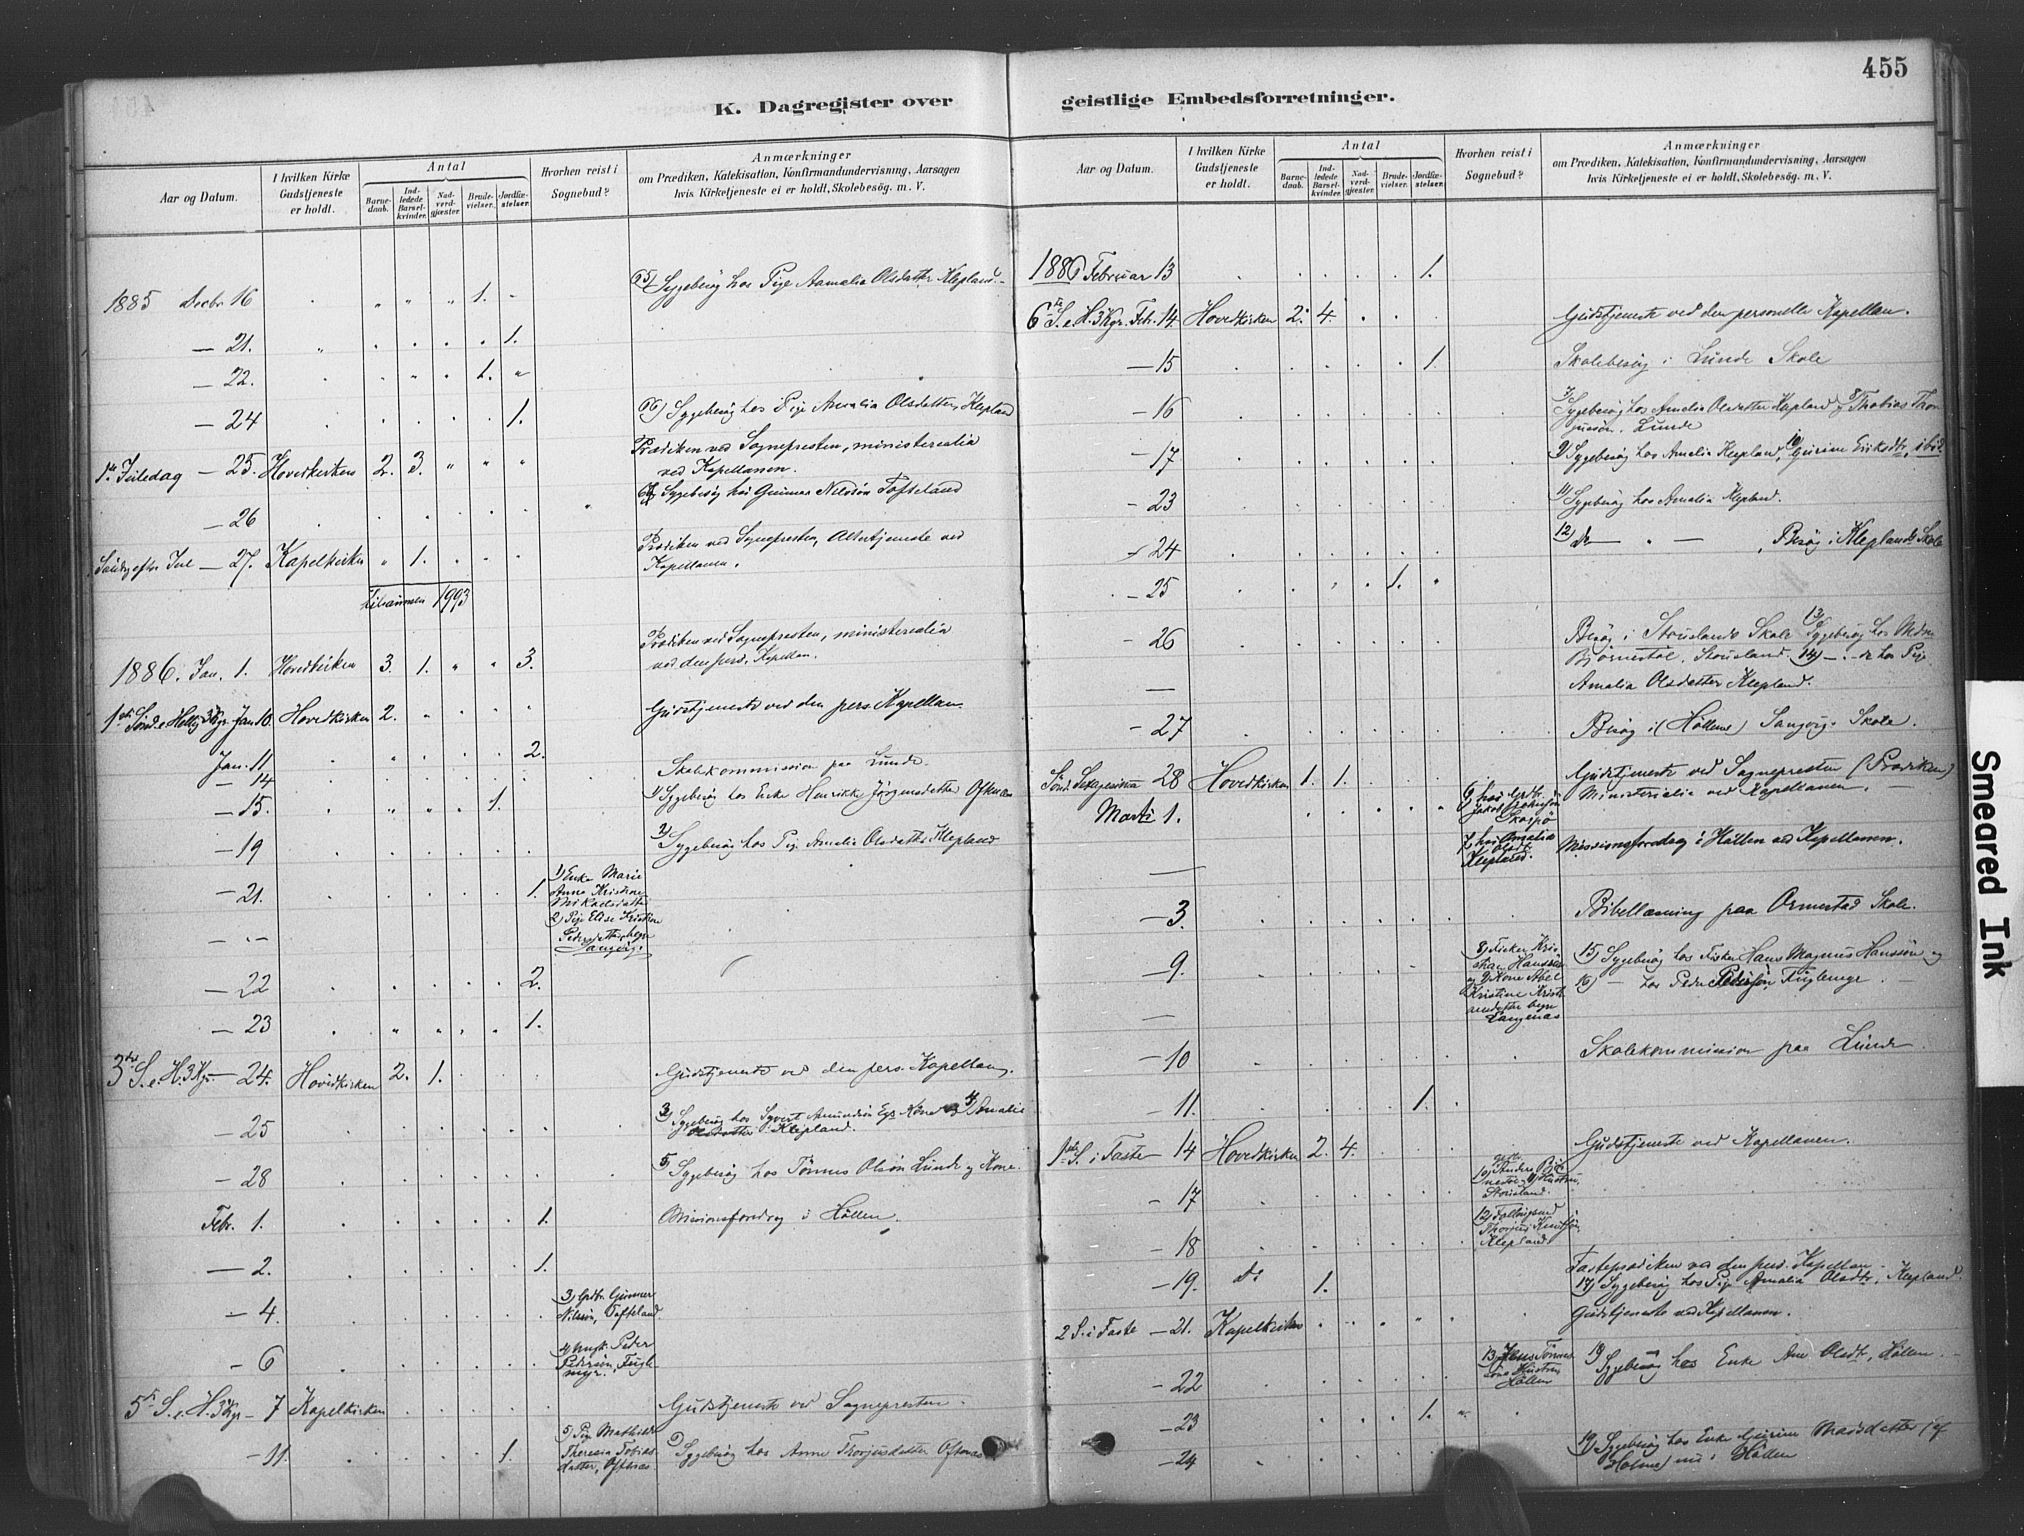 455
K. Dagregister over geistlige Embedsforretninger.
Aar og Datum.
I hvilken Kirke Gudstjeneste er holdt.
Antal
Barnedaab.
Indledede Barselkvinder.
Nadverdgjæster.
Brudevielser.
Jordfæstelser.
Hvorhen reist i Sognebud?
Anmærkninger
om Prædiken, Katekisation, Konfirmandundervisning, Aarsagen
hvis Kirketjeneste ei er holdt, Skolebesög. m. V.
1885 Decbr 16 1. 65) Sygebesög hos Pige Aamalia Olsdatter Klepland.
— 21. 1.
— 22. 1.
— 24 1. 66) Sygebesög hos Pige Amalia Olsdatter, Klepland
1ste Juledag — 25. Hovedkirken 2. 3. Prædiken ved Sognepresten, ministerialia
ved Kapellanen.
— 26 Sygebesög hos Gunnar Nilssön Tofteland
Söndag efter Jul — 27. Kapelkirken 1. Prædiken ved Sognepresten, Altertjeneste ved
Kapellanen.
Tilsammen 1993
1886. Jan. 1. Hovedkirken 3. 1. 3. Prædiken ved Sognepresten, ministerialia
ved den pers. Kapellan.
1ste Sönd. e. Hellig 3 Kgr. Jan 10. Hovedkirken 2. Gudstjeneste ved den pers. Kapellan
Jan. 11 2.
— 14 Skolekommission paa Lunde.
— 15. 1. 1) Sygebesög hos Enke Henrikke Jörgensdatter Oftenæs
— 19 2) Sygebesög hos Pige Amalia Olsdatter Klepland
— 21. 1. 1) Enke Marie
Anna Kristine
2) Pige Elise Kristine
Pedersdatter, begge
Langvig.
— 22 2.
— 23 1.
3die S. e. H. 3 Kgr — 24. Hovedkirken 2. 1. Gudstjeneste ved den pers. Kapellan.
— 25 3) Sygebesög hos Syvert Amundsön Egs Kone og 4) Amalie
Olsdatter Klepland.
— 28 5) Sygebesög hos Tönnes Olsön Lunde og Kone.
Febr. 1. 1. Missionsforedrag i Höllen.
— 2. 1.
— 4. 3) Gdbr. Gunner
Nilssön, Tofteland
— 6 4) Ungk. Peder
Pedersön, Fugle-
myr.
5te S. e. H. 3 Kgr — 7 Kapelkirken Gudstjeneste ved Sognepresten.
— 11. 1. 5) Pige Mathilde
Theresia Tobias-
datter, Oftenæs. Sygebesög hos Anne Thorjusdatter Oftenæs
Aar og Datum.
I hvilken Kirke Gudstjeneste er holdt.
Antal
Barnedaab.
Indledede Barselkvinder.
Nadvergjæster.
Brudevielser.
Jordfæstelser.
Hvorhen reist i Sognebud?
Anmærkninger
om Prædiken, Katekisation, Konfirmandundervisning, Aarsagen
hvis Kirketjeneste ei er holdt, Skolebesög. m. V.
1886 Februar 13 1.
6te S. e. H. 3 Kgr. Febr. 14. Hovedkirken 2. 4. Gudstjeneste ved den personelle Kapellan.
— 15 1. Skolebesög i Lunde Skole
— 16 7) Sygebesög hos Amalia Olsdatter Klepland og 8) Thobias Thor-
jussön, Lunde
— 17 9) Sygebesög hos Amalia Klepland, 10) Gurine Eriksdtr., ibid.
— 23 11) Sygebesög hos Amalia Klepland.
— 24 12) do — " — , Besög i Kleplands Skole
— 25 1.
— 26 Besög i Strislands Skole 13) Sygebesög hos
Björnestöl, Strisland. 14) — do hos Pige
Amalia Olsdatter Klepland.
— 27 Besög i (Höllens) Langvig Skole.
Sönd. Seksagesima 28 Hovedkirken 1. 1. Gudstjeneste ved Sognepresten (Prædiken)
Ministerialia ved Kapellanen.
Marts 1. 6) hos Gdbr.
Jakob
7) hos Amalia
Olsdtr.
Klepland. Missionsforedrag i Höllen ved Kapellanen.
— 3. Bibellæsning paa Ormestad Skole.
— 9. 8) Fisker Kri-
stian Hanssön
og 9) Kone Abel
Kristine Kristi-
ansdatter begge
Langenæs 15) Sygebesög hos Fisker Hans Magnus Hanssön og
16) — hos Peder Pedersön, Fuglemyr.
— 10 Skolekommission paa Lunde
— 11. 1.
1ste S. i Faste 14 Hovedkirken 2. 4. Gudstjeneste ved Kapellanen.
— 17 10) Anders Björ-
nestöl og 11) Hustru,
Strisland.
— 18 12)
Thorjus Knudsön,
Klepland
— 19. do 1. Fasteprædiken ved den pers. Kapellan.
17) Sygebesög hos Pige Amalia Olsdtr., Klepland.
2 S. i Faste — 21. Kapelkirken Gudstjeneste ved Kapellanen.
— 22 13) Jens Tönnes-
söns Hustru
Höllen 18) Sygebesög hos Enke Ane Olsdtr., Höllen.
— 23 1.
— 24 19) Sygebesög hos Enke Gurine Madsdatter (af
Holme) nu i Höllen
Smeared Ink